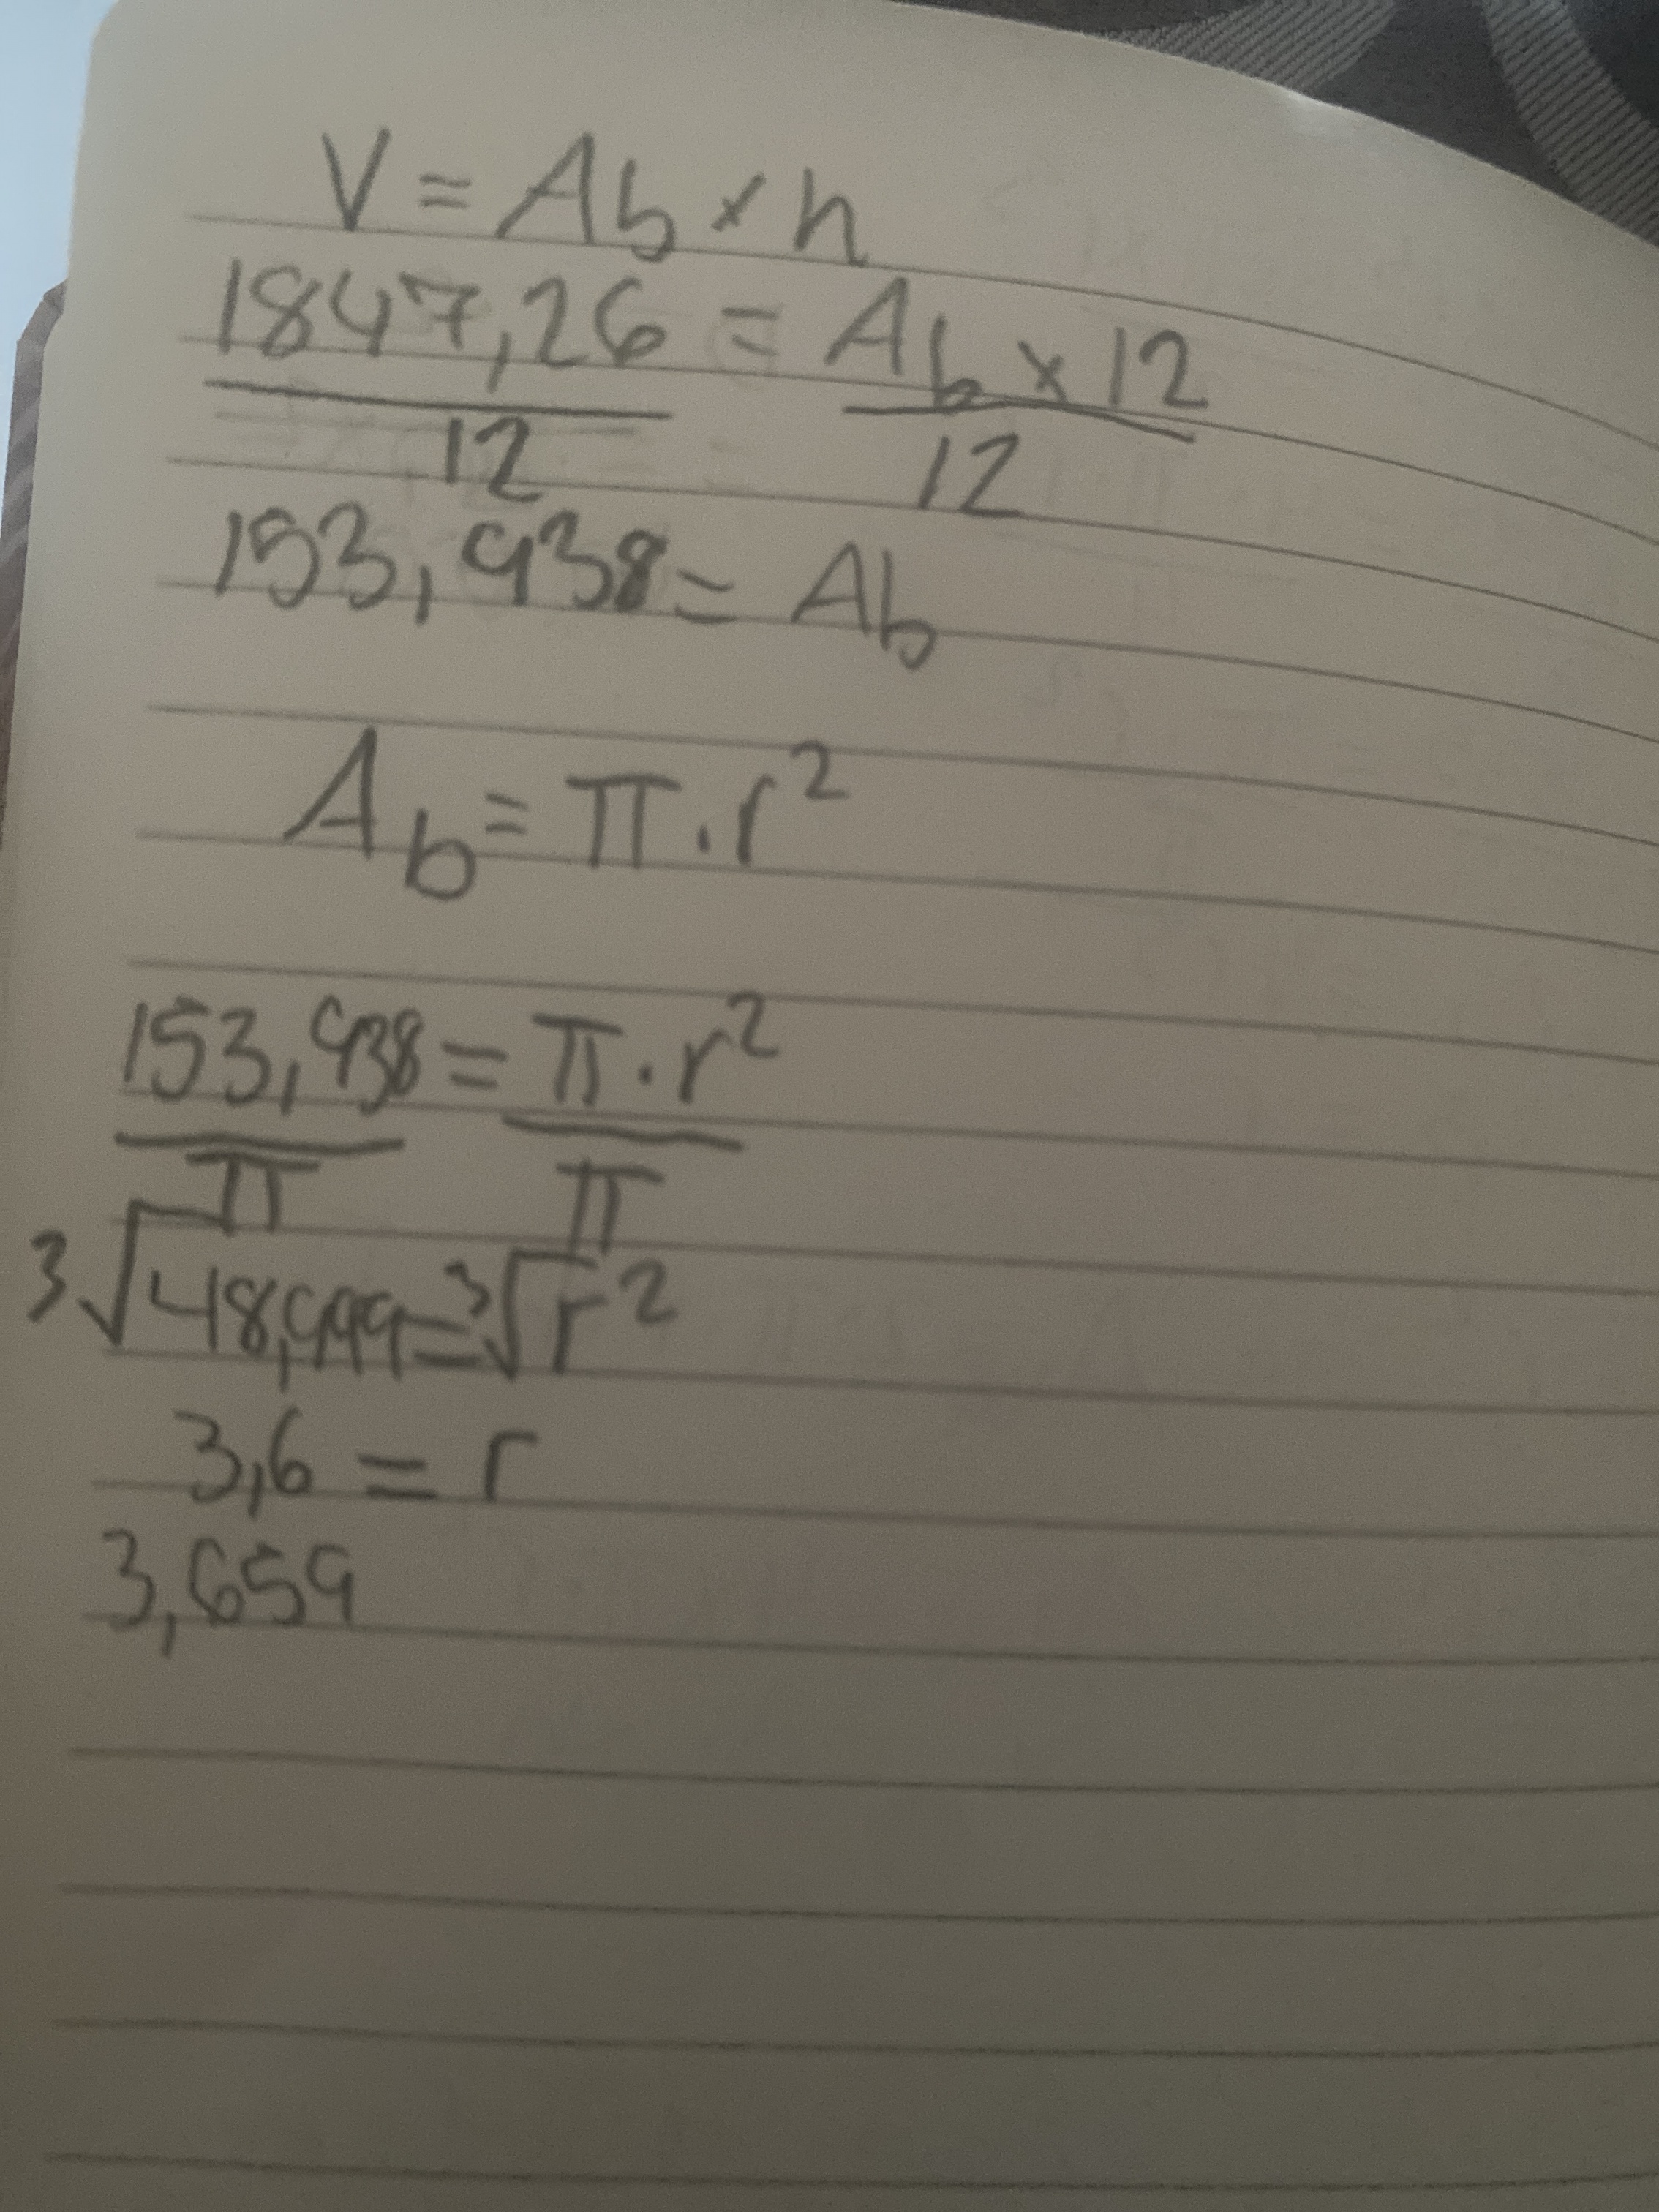 V = Ab × h
1847,26 = Ab × 12
12 12
153,938 = Ab
Ab = π · r²
153,938 = π · r²
π π
³√48,999 = ³√r²
3,6 = r
3,659